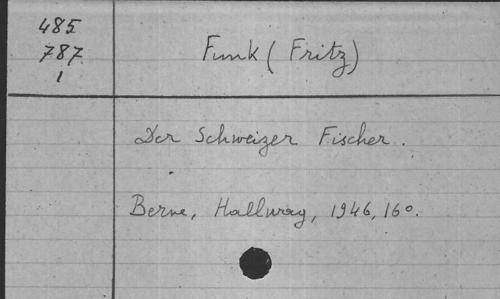 485
787
1
Funk (Fritz)
Der Schweizer Fischer.
Berne, Hallwag, 1946, 16º.